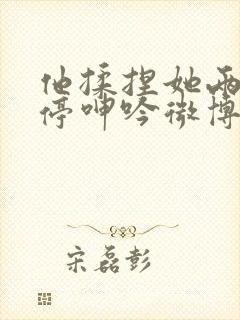 他揉捏她两
停呻吟微博
宋磊彭